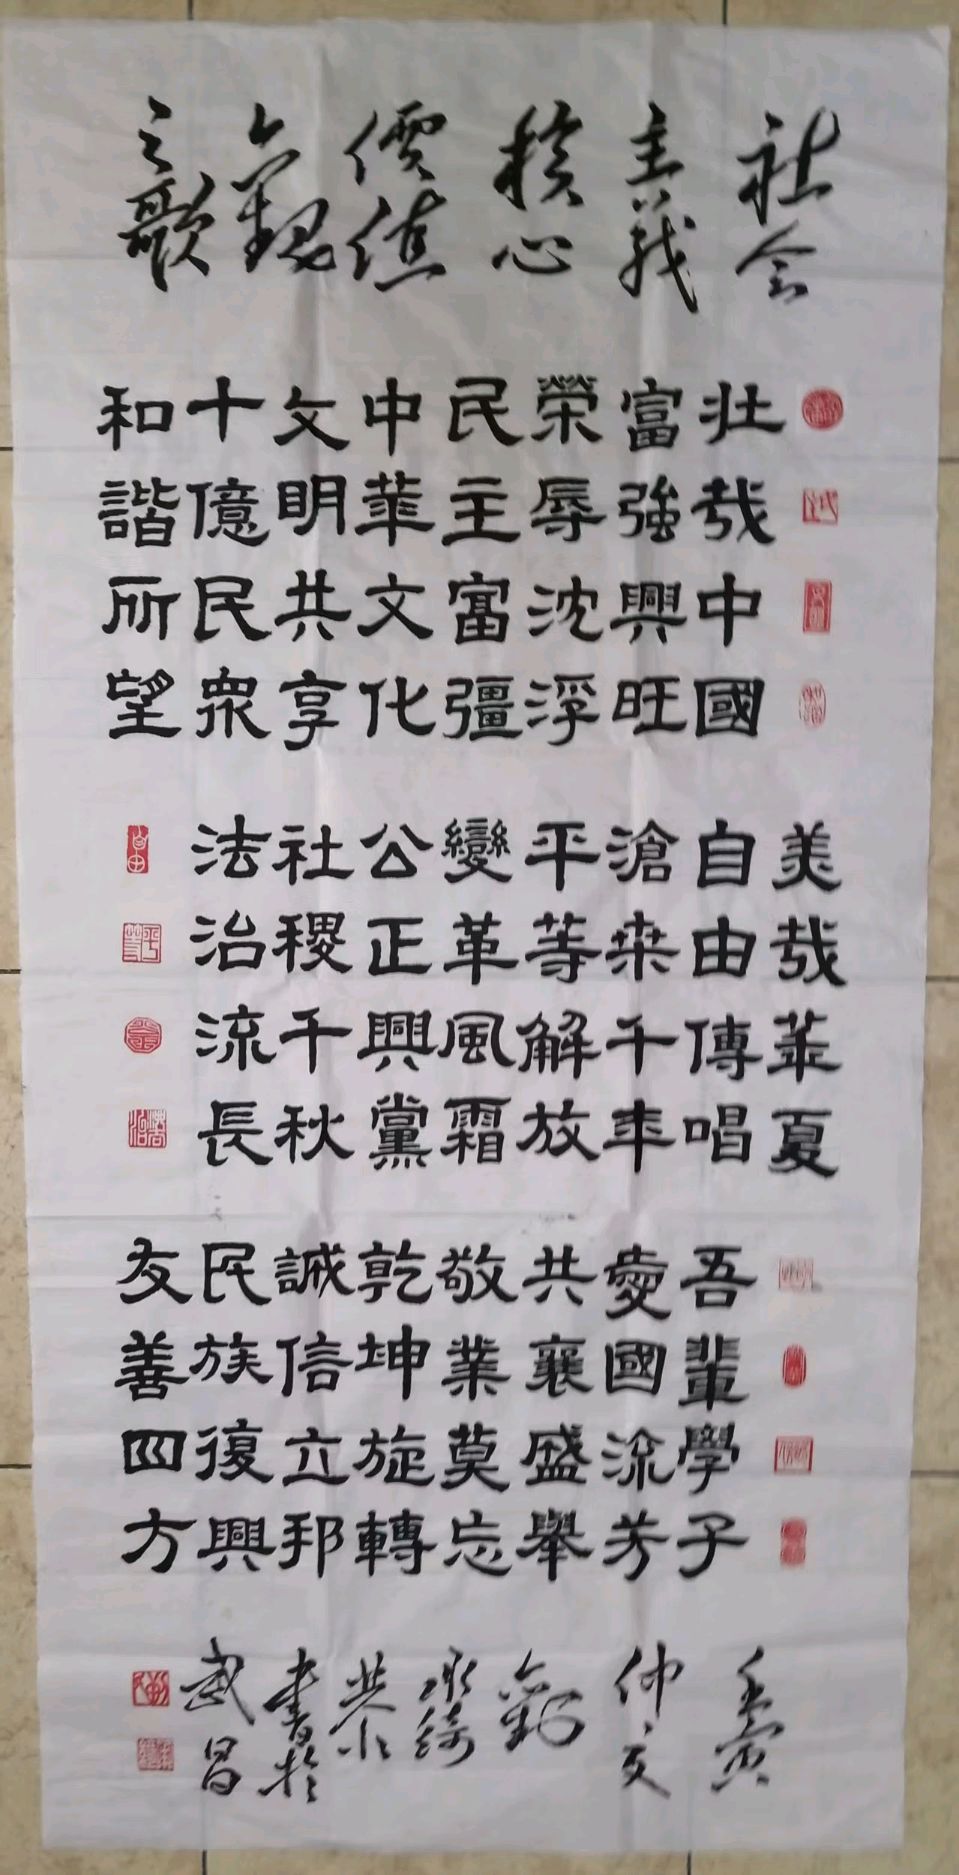 社会
主義
核心
價值
觀
之歌
壯哉中國
富強興旺
榮辱沈浮
民主富疆
中華文化
文明共享
十億民眾
和諧所望
美哉華夏
自由傳唱
滄桒千年
平等解放
變革風霜
公正興黨
社稷千秋
法治流長
自由
平等
吾輩學子
愛國流芳
共襄盛舉
敬業莫忘
乾坤旋轉
誠信立邦
民族復興
友善四方
壬寅
仲夏
恭
書於
武昌